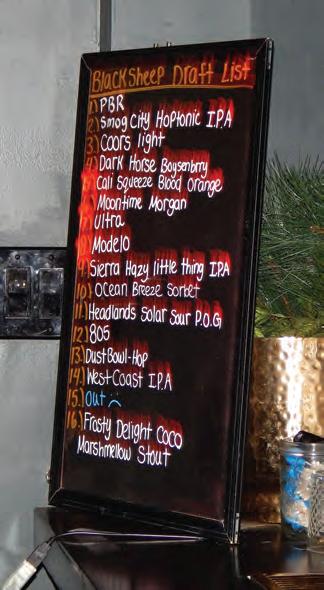 Black Sheep Draft List
1.) PBR
2.) Smog City Hoptonic I.P.A
3.) Coors light
4.) Dark Horse Boysenbrry
Cali Squeeze Blood Orange
Moontime Morgan
Ultra
Modelo
9.) Sierra Hazy little thing IPA
10.) Ocean Breeze Sorbet
11.) Headlands Solar Sour P.O.G
12.) 805
13.) Dust Bowl-Hop
14.) West Coast I.P.A
15.) Out
16.) Frosty Delight Coco
Marshmellow Stout